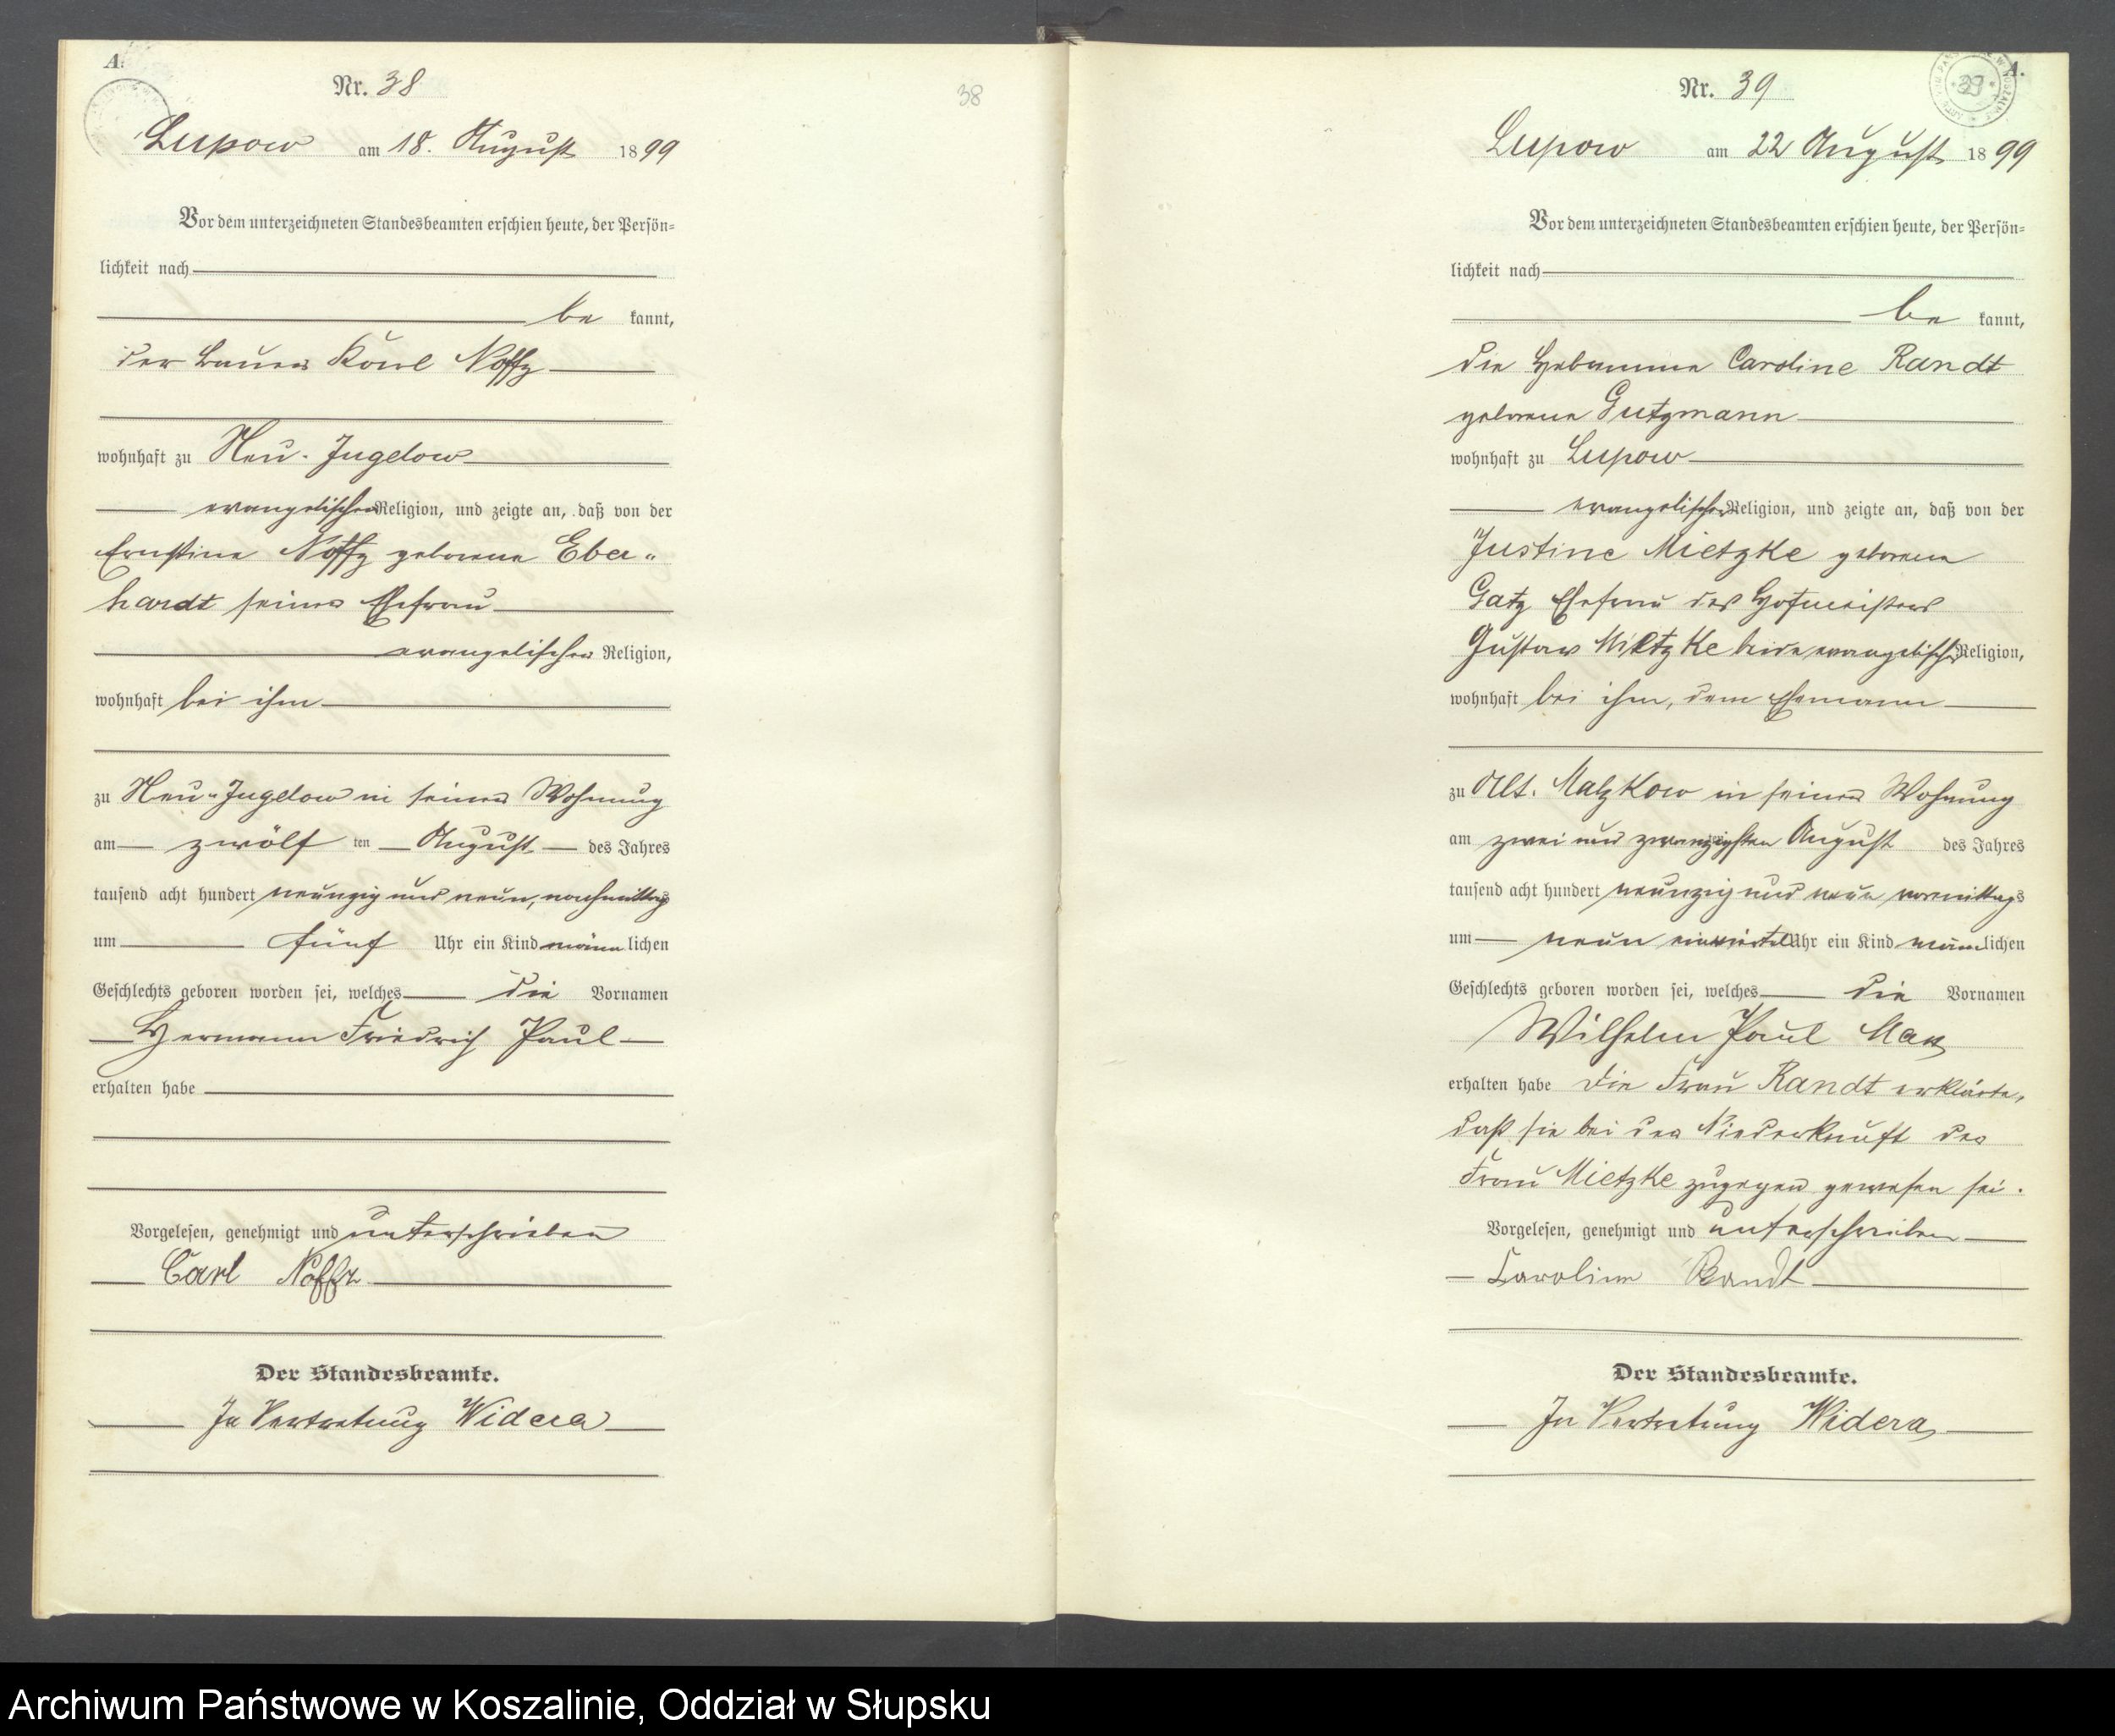 A.
Nr. 38
Lupow am 18. August 1899
Vor dem unterzeichneten Standesbeamten erschien heute, der Persön=
lichkeit nach
be kannt,
der Bauer Karl Noffz
wohnhaft zu Neu-Jugelow
evangelischer Religion, und zeigte an, daß von der
Ernstine Noffz geborene Eber-
hardt seiner Ehefrau
evangelischer Religion,
wohnhaft bei ihm
zu Neu-Jugelow in seiner Wohnung
am zwölf ten August des Jahres
tausend acht hundert neunzig und neun, nachmittags
um fünf Uhr ein Kind männlichen
Geschlechts geboren worden sei, welches die Vornamen
Hermann Friedrich Paul
erhalten habe
Vorgelesen, genehmigt und unterschrieben
Carl Noffz
Der Standesbeamte.
In Vertretung Widera
38
A.
39
Nr. 39
Lupow am 22 August 1899
Vor dem unterzeichneten Standesbeamten erschien heute, der Persön=
lichkeit nach
be kannt,
die Hebamme Caroline Randt
geborene Gutzmann
wohnhaft zu Lupow
evangelischer Religion, und zeigte an, daß von der
Justine Mietzke geborene
Gatz Ehefrau des Hofmeisters
Gustav Mietzke beide evangelischer Religion,
wohnhaft bei ihm, dem Ehemann
zu Alt-Malzkow in seiner Wohnung
am zwei und zwanzigsten August des Jahres
tausend acht hundert neunzig und neun vormittags
um neun einviertel Uhr ein Kind männlichen
Geschlechts geboren worden sei, welches die Vornamen
Wilhelm Paul Max
erhalten habe Die Frau Randt erklärte,
daß sie bei der Niederkunft der
Frau Mietzke zugegen gewesen sei.
Vorgelesen, genehmigt und unterschrieben
Caroline Randt
Der Standesbeamte.
In Vertretung Widera
Archiwum Państwowe w Koszalinie, Oddział w Słupsku